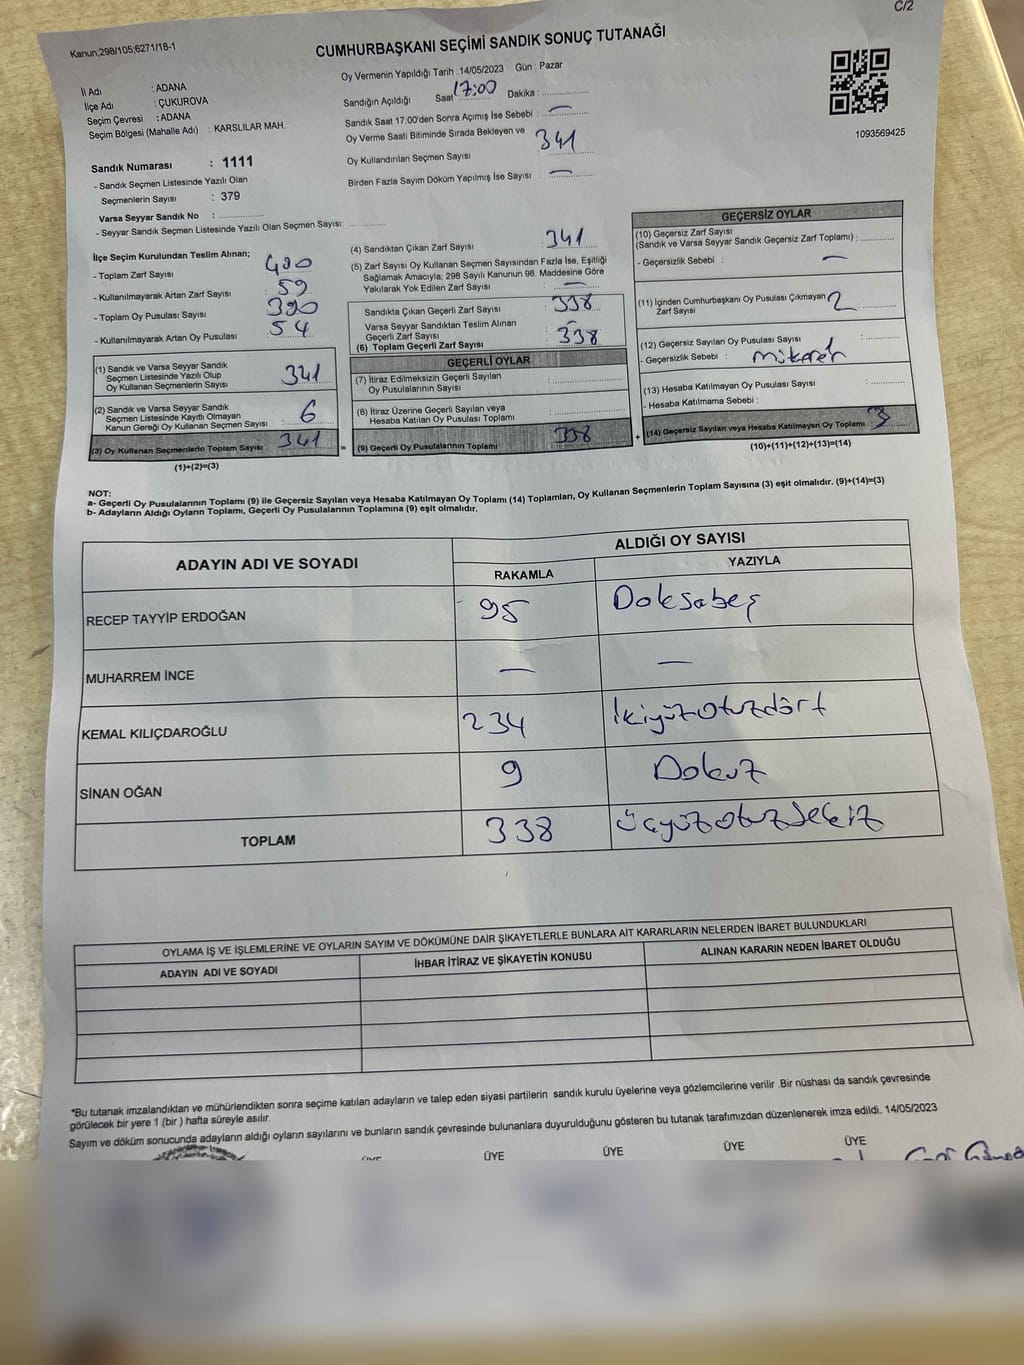 C/2
Kanun;298/105;6271/18-1
CUMHURBAŞKANI SEÇİMİ SANDIK SONUÇ TUTANAĞI
İl Adı : ADANA
İlçe Adı : ÇUKUROVA
Seçim Çevresi : ADANA
Seçim Bölgesi (Mahalle Adı) : KARSLILAR MAH.
Oy Vermenin Yapıldığı Tarih : 14/05/2023 Gün : Pazar
Sandığın Açıldığı Saat 17:00 Dakika :
Sandık Saat 17:00'den Sonra Açımış İse Sebebi : —
Oy Verme Saati Bitiminde Sırada Bekleyen ve
Oy Kullandırılan Seçmen Sayısı 341
Birden Fazla Sayım Döküm Yapılmış İse Sayısı : —
1093569425
Sandık Numarası : 1111
- Sandık Seçmen Listesinde Yazılı Olan
Seçmenlerin Sayısı : 379
Varsa Seyyar Sandık No :
- Seyyar Sandık Seçmen Listesinde Yazılı Olan Seçmen Sayısı:
İlçe Seçim Kurulundan Teslim Alınan;
- Toplam Zarf Sayısı 400
- Kullanılmayarak Artan Zarf Sayısı : 59
- Toplam Oy Pusulası Sayısı : 390
- Kullanılmayarak Artan Oy Pusulası : 54
(1) Sandık ve Varsa Seyyar Sandık
Seçmen Listesinde Yazılı Olup
Oy Kullanan Seçmenlerin Sayısı : 341
(2) Sandık ve Varsa Seyyar Sandık
Seçmen Listesinde Kayıtlı Olmayan
Kanun Gereği Oy Kullanan Seçmen Sayısı : 6
(3) Oy Kullanan Seçmenlerin Toplam Sayısı : 341
(1)+(2)=(3)
(4) Sandıktan Çıkan Zarf Sayısı : 341
(5) Zarf Sayısı Oy Kullanan Seçmen Sayısından Fazla İse, Eşitliği
Sağlamak Amacıyla, 298 Sayılı Kanunun 98. Maddesine Göre
Yakılarak Yok Edilen Zarf Sayısı : —
Sandıkta Çıkan Geçerli Zarf Sayısı : 338
Varsa Seyyar Sandıktan Teslim Alınan
Geçerli Zarf Sayısı : —
(6) Toplam Geçerli Zarf Sayısı : 338
GEÇERLİ OYLAR
(7) İtiraz Edilmeksizin Geçerli Sayılan
Oy Pusulalarının Sayısı :
(8) İtiraz Üzerine Geçerli Sayılan veya
Hesaba Katılan Oy Pusulası Toplamı :
= (9) Geçerli Oy Pusulalarının Toplamı : 338
GEÇERSİZ OYLAR
(10) Geçersiz Zarf Sayısı
(Sandık ve Varsa Seyyar Sandık Geçersiz Zarf Toplamı) :
- Geçersizlik Sebebi : —
(11) İçinden Cumhurbaşkanı Oy Pusulası Çıkmayan
Zarf Sayısı : 2
(12) Geçersiz Sayılan Oy Pusulası Sayısı : 1
- Geçersizlik Sebebi : mükerrer
(13) Hesaba Katılmayan Oy Pusulası Sayısı :
- Hesaba Katılmama Sebebi :
+ (14) Geçersiz Sayılan veya Hesaba Katılmayan Oy Toplamı : 3
(10)+(11)+(12)+(13)=(14)
NOT:
a- Geçerli Oy Pusulalarının Toplamı (9) ile Geçersiz Sayılan veya Hesaba Katılmayan Oy Toplamı (14) Toplamları, Oy Kullanan Seçmenlerin Toplam Sayısına (3) eşit olmalıdır. (9)+(14)=(3)
b- Adayların Aldığı Oyların Toplamı, Geçerli Oy Pusulalarının Toplamına (9) eşit olmalıdır.
ADAYIN ADI VE SOYADI ALDIĞI OY SAYISI
RAKAMLA YAZIYLA
RECEP TAYYİP ERDOĞAN 95 Doksabeş
MUHARREM İNCE — —
KEMAL KILIÇDAROĞLU 234 İkiyüzotuzdört
SİNAN OĞAN 9 Dokuz
TOPLAM 338 üçyüzotuzsekiz
OYLAMA İŞ VE İŞLEMLERİNE VE OYLARIN SAYIM VE DÖKÜMÜNE DAİR ŞİKAYETLERLE BUNLARA AİT KARARLARIN NELERDEN İBARET BULUNDUKLARI
ADAYIN ADI VE SOYADI İHBAR İTİRAZ VE ŞİKAYETİN KONUSU ALINAN KARARIN NEDEN İBARET OLDUĞU
*Bu tutanak imzalandıktan ve mühürlendikten sonra seçime katılan adayların ve talep eden siyasi partilerin sandık kurulu üyelerine veya gözlemcilerine verilir .Bir nüshası da sandık çevresinde
görülecek bir yere 1 (bir ) hafta süreyle asılır.
Sayım ve döküm sonucunda adayların aldığı oyların sayılarını ve bunların sandık çevresinde bulunanlara duyurulduğunu gösteren bu tutanak tarafımızdan düzenlenerek imza edildi. 14/05/2023
ÜYE ÜYE ÜYE ÜYE ÜYE